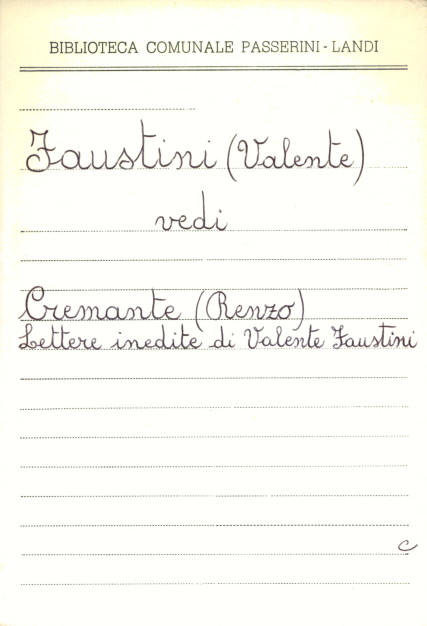 BIBLIOTECA COMUNALE PASSERINI-LANDI
Faustini (Valente)
vedi
Cremante (Renzo)
Lettere inedite di Valente Faustini
c